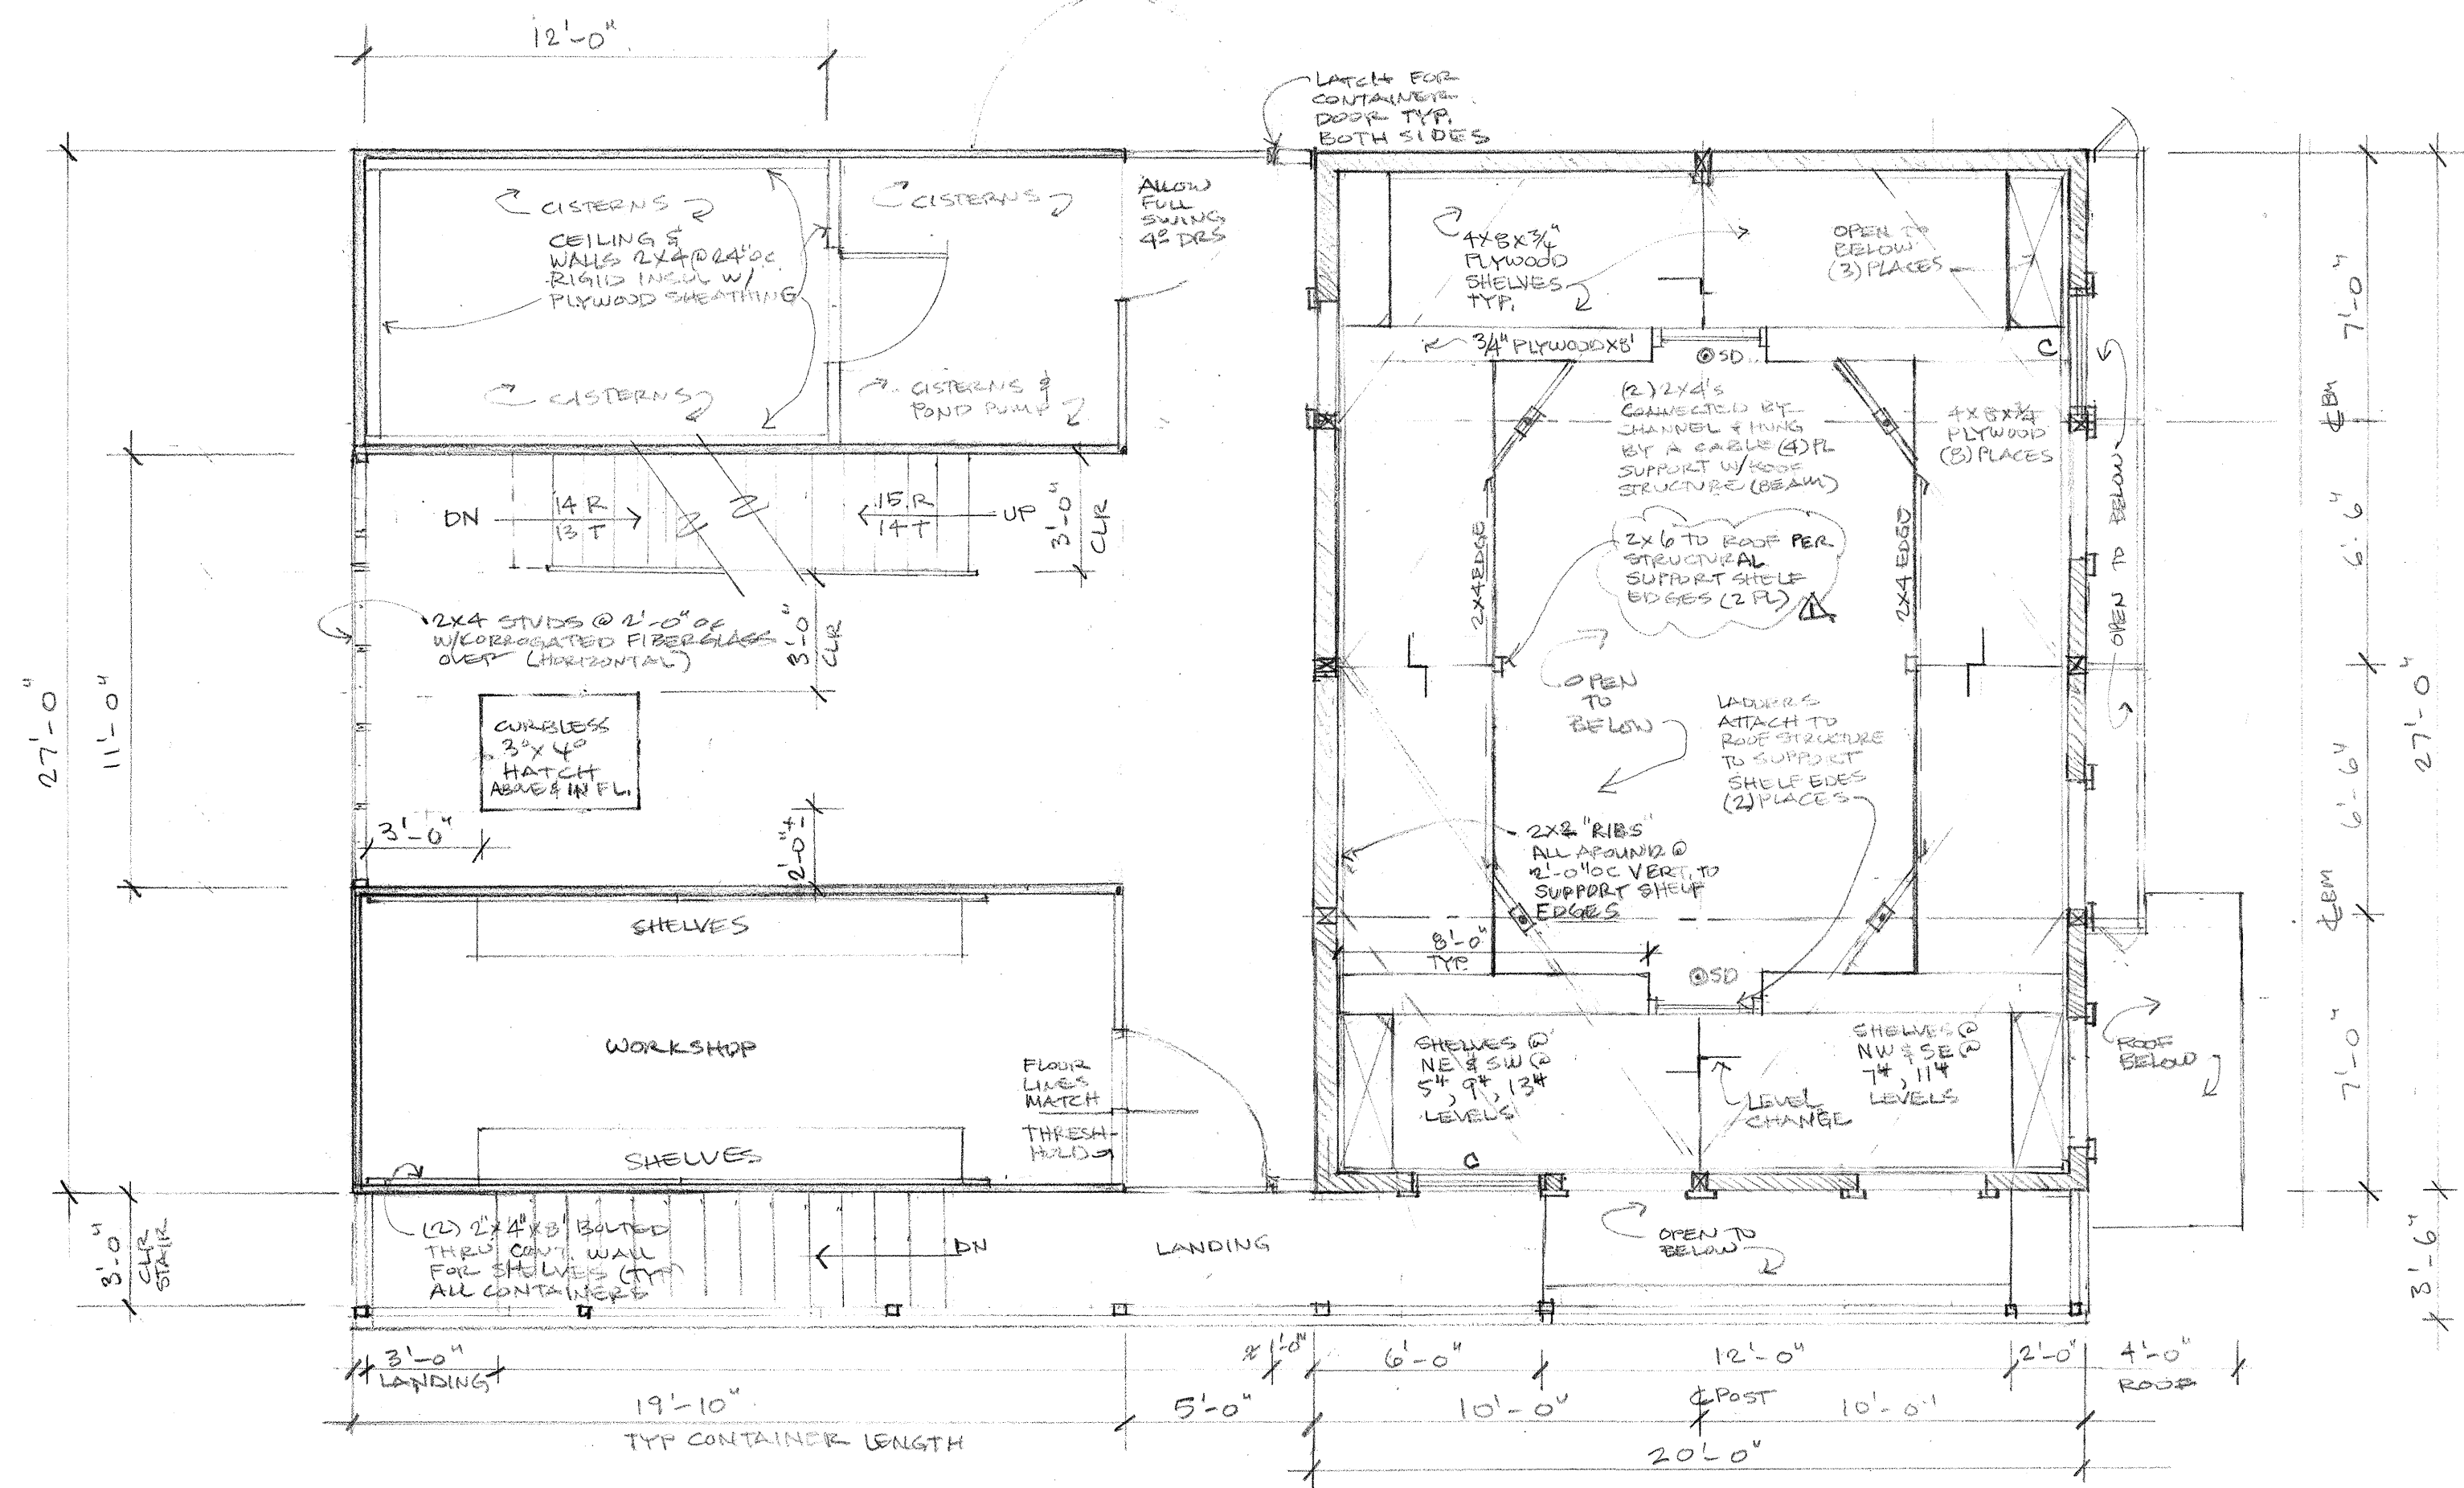 12'-0"
LATCH FOR
CONTAINER
DOOR TYP.
BOTH SIDES
CISTERNS
CEILING &
WALLS 2X4@24"OC
RIGID INSUL W/
PLYWOOD SHEATHING
CISTERNS
CISTERNS
CISTERNS &
POND PUMP
ALLOW
FULL
SWING
4⁰ DRS
27'-0"
11'-0"
DN
14 R
13 T
15 R
14 T
UP
3'-0"
CLR
2X4 STUDS @ 2'-0" OC
W/KORROGATED FIBERGLASS
OVER (HORIZONTAL)
3'-0"
CLR
CURBLESS
3⁰X 4⁰
HATCH
ABOVE & IN FL.
3'-0"
2'-0"±
SHELVES
WORKSHOP
SHELVES
FLOOR
LINES
MATCH
THRESH-
HOLD
3'-0"
CLR
STAIR
(2) 2"X4"X8' BOLTED
THRU CONT. WALL
FOR SHELVES (TYP)
ALL CONTAINERS
DN
LANDING
3'-0"
LANDING
19'-10"
TYP CONTAINER LENGTH
5'-0"
1'-0"
4X8X3/4"
PLYWOOD
SHELVES
TYP.
OPEN TO
BELOW
(3) PLACES
3/4" PLYWOOD X8'
SD
C
(2) 2X4'S
CONNECTED BY
CHANNEL & HUNG
BY A CABLE (4) PL
SUPPORT W/ROOF
STRUCTURE (BEAM)
4X8X3/4
PLYWOOD
(8) PLACES
2X4 EDGE
2X4 EDGE
2X6 TO ROOF PER
STRUCTURAL
SUPPORT SHELF
EDGES (2 PL)
1
OPEN
TO
BELOW
LADDERS
ATTACH TO
ROOF STRUCTURE
TO SUPPORT
SHELF EDES
(2) PLACES
2X2 "RIBS"
ALL AROUND @
2'-0"OC VERT. TO
SUPPORT SHELF
EDGES
8'-0"
TYP.
SD
SHELVES @
NE & SW @
5⁴, 9⁴, 13⁴
LEVELS
SHELVES @
NW & SE @
7⁴, 11⁴
LEVELS
LEVEL
CHANGE
C
OPEN TO
BELOW
OPEN TO BELOW
ROOF
BELOW
7'-0"
℄ BM
6'-6"
6'-6"
℄ BM
7'-0"
27'-0"
3'-6"
6'-0"
12'-0"
2'-0"
4'-0"
ROOF
10'-0"
℄ POST
10'-0"
20'-0"